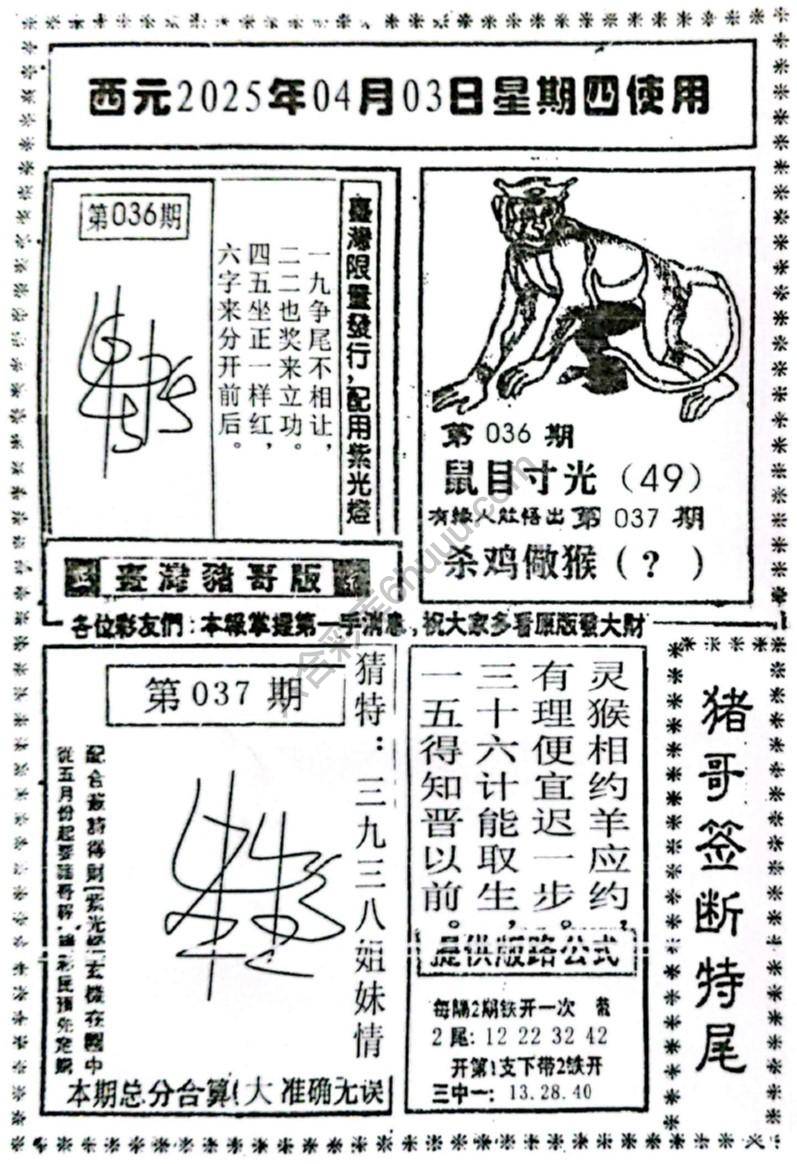 西元2025年04月03日星期四使用
第036期
臺灣限量發行，配用紫光燈
一九争尾不相让，
二二也奖来立功。
四五坐正一样红，
六字来分开前后。
第 036 期
鼠目寸光（49）
有緣人可悟出第 037 期
杀鸡儆猴（？）
臺灣豬哥版
各位彩友們：本報掌握第一手消息，祝大家多看原版發大財
第 037 期
猜特：三九三八姐妹情
從五月份起要豬哥報，請彩民預先定購
本期总分合算(大 准确无误
灵猴相约羊应约，
有理便宜迟一步。
三十六计能取生，
一五得知晋以前。
提供版路公式
每隔2期铁开一次 带
2尾：12 22 32 42
开第1支下带2铁开
三中一：13.28.40
猪哥签断特尾
六合彩库6huuu.com